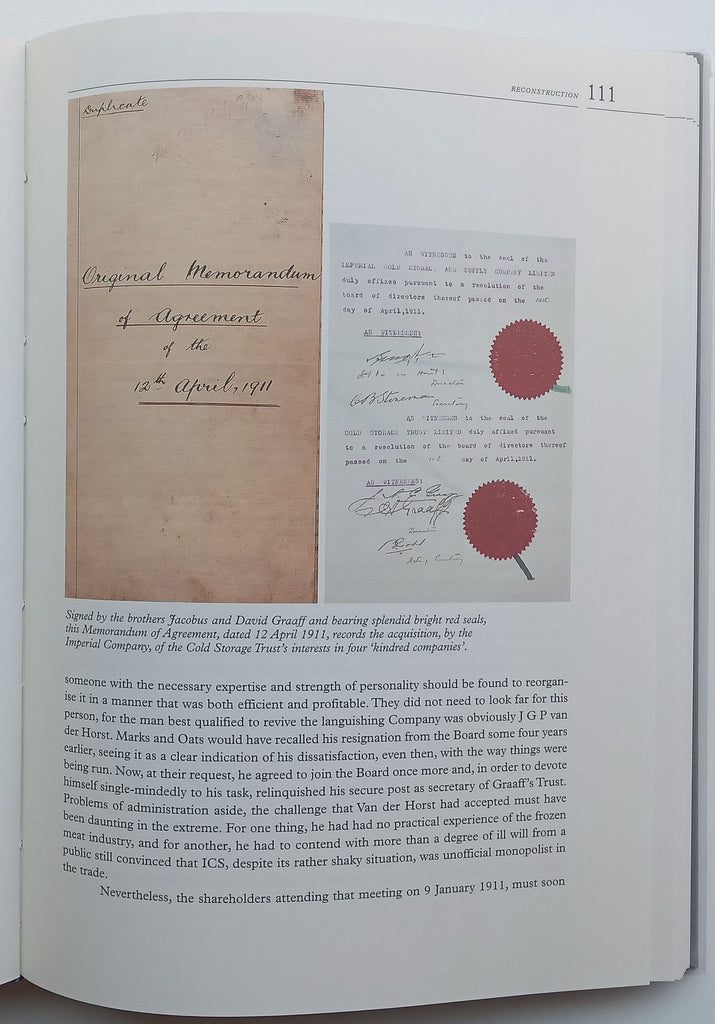 RECONSTRUCTION 111
Duplicate
Original Memorandum
of Agreement
of the
12th April, 1911
AS WITNESSES to the seal of the
IMPERIAL COLD STORAGE AND SUPPLY COMPANY LIMITED
duly affixed pursuant to a resolution of the
board of directors thereof passed on the
day of April, 1911.
AS WITNESSES:
Director
C B Steneman
Secretary
AS WITNESSES to the seal of the
COLD STORAGE TRUST LIMITED duly affixed pursuant
to a resolution of the board of directors thereof
passed on the day of April, 1911.
AS WITNESSES:
Graaff
Director
Acting Secretary
Signed by the brothers Jacobus and David Graaff and bearing splendid bright red seals,
this Memorandum of Agreement, dated 12 April 1911, records the acquisition, by the
Imperial Company, of the Cold Storage Trust's interests in four 'kindred companies'.
someone with the necessary expertise and strength of personality should be found to reorgan-
ise it in a manner that was both efficient and profitable. They did not need to look far for this
person, for the man best qualified to revive the languishing Company was obviously J G P van
der Horst. Marks and Oats would have recalled his resignation from the Board some four years
earlier, seeing it as a clear indication of his dissatisfaction, even then, with the way things were
being run. Now, at their request, he agreed to join the Board once more and, in order to devote
himself single-mindedly to his task, relinquished his secure post as secretary of Graaff's Trust.
Problems of administration aside, the challenge that Van der Horst had accepted must have
been daunting in the extreme. For one thing, he had had no practical experience of the frozen
meat industry, and for another, he had to contend with more than a degree of ill will from a
public still convinced that ICS, despite its rather shaky situation, was unofficial monopolist in
the trade.
Nevertheless, the shareholders attending that meeting on 9 January 1911, must soon